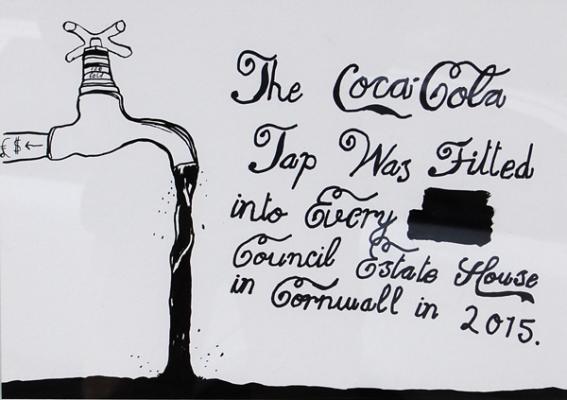 The Coca-Cola
Tap Was Fitted
into Every
Council Estate House
in Cornwall in 2015.
£$←